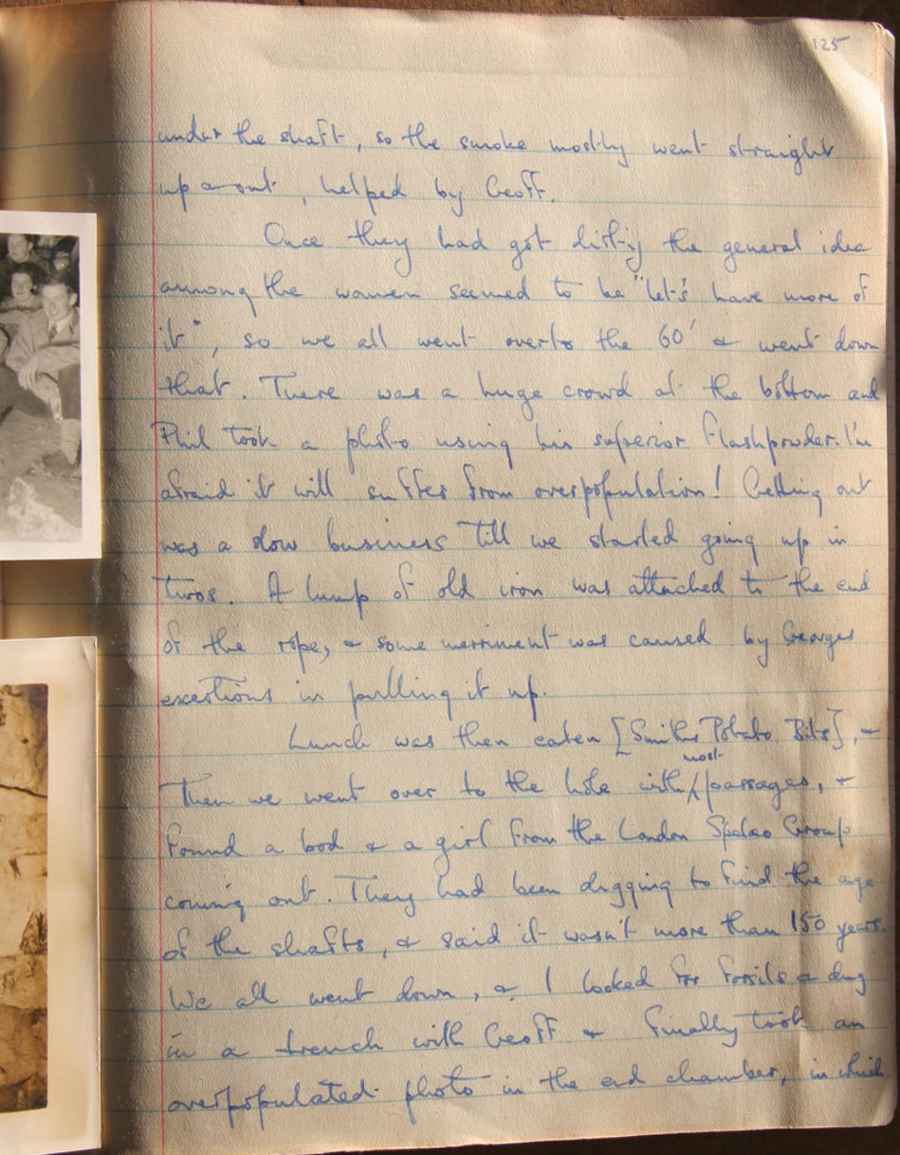 125
under the shaft, so the smoke mostly went straight
up & out, helped by Geoff.
Once they had got dirty the general idea
among the women seemed to be "let's have more of
it", so we all went over to the 60' & went down
that. There was a huge crowd at the bottom and
Phil took a photo using his superior flashpowder. I'm
afraid it will suffer from overpopulation! Getting out
was a slow business till we started going up in
twos. A lump of old iron was attached to the end
of the rope, & some merriment was caused by Georges
exertions in pulling it up.
Lunch was then eaten [Smiths Potato Bits], &
Then we went over to the hole with most passages, &
found a bod & a girl from the London Spelaeo Group
coming out. They had been digging to find the age
of the shafts, & said it wasn't more than 150 years.
We all went down, & I looked for fossils & dug
in a trench with Geoff & finally took an
overpopulated photo in the end chamber, in which